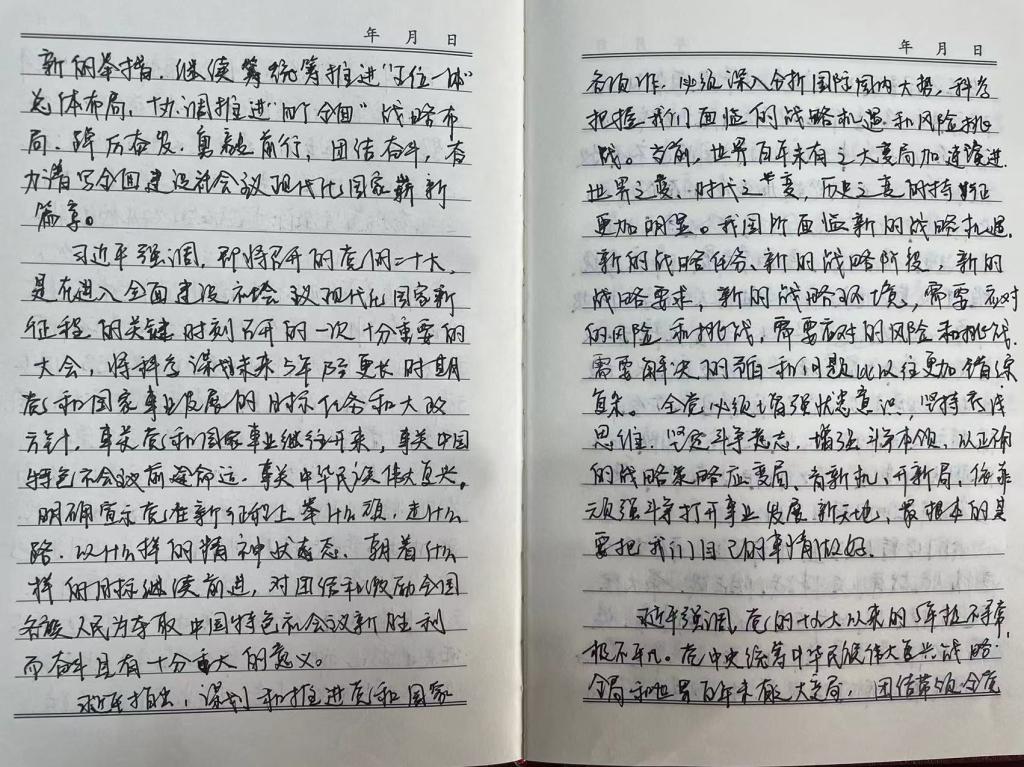 年 月 日
新的举措，继续筹统筹推进"五位一体"
总体布局、协调推进"四个全面"战略布
局，踔厉奋发、勇毅前行，团结奋斗，奋
力谱写全面建设社会主义现代化国家崭新
篇章。
习近平强调，即将召开的党的二十大，
是在进入全面建设社会主义现代化国家新
征程的关键时刻召开的一次十分重要的
大会，将科学谋划未来5年乃至更长时期
党和国家事业发展的目标任务和大政
方针，事关党和国家事业继往开来，事关中国
特色社会主义前途命运，事关中华民族伟大复兴。
明确宣示党在新征程上举什么旗，走什么
路、以什么样的精神状态、朝着什么
样的目标继续前进，对团结和激励全国
各族人民为夺取中国特色社会主义新胜利
而奋斗具有十分重大的意义。
习近平指出，谋划和推进党和国家
年 月 日
各项工作，必须深入分析国际国内大势，科学
把握我们面临的战略机遇和风险挑
战。当前，世界百年未有之大变局加速演进
世界之变、时代之变，历史之变的特征
更加明显。我国所面临新的战略机遇、
新的战略任务、新的战略阶段，新的
战略要求，新的战略环境，需要应对
的风险和挑战，需要应对的风险和挑战、
需要解决的矛盾和问题比以往更加错综
复杂。全党必须增强忧患意识，坚持底线
思维，坚定斗争意志，增强斗争本领，以正确
的战略策略应变局、育新机、开新局，依靠
顽强斗争打开事业发展新天地，最根本的是
要把我们自己的事情做好。
习近平强调，党的十九大以来的5年极不寻常，
极不平凡。党中央统筹中华民族伟大复兴战略
全局和世界百年未有之大变局，团结带领全党